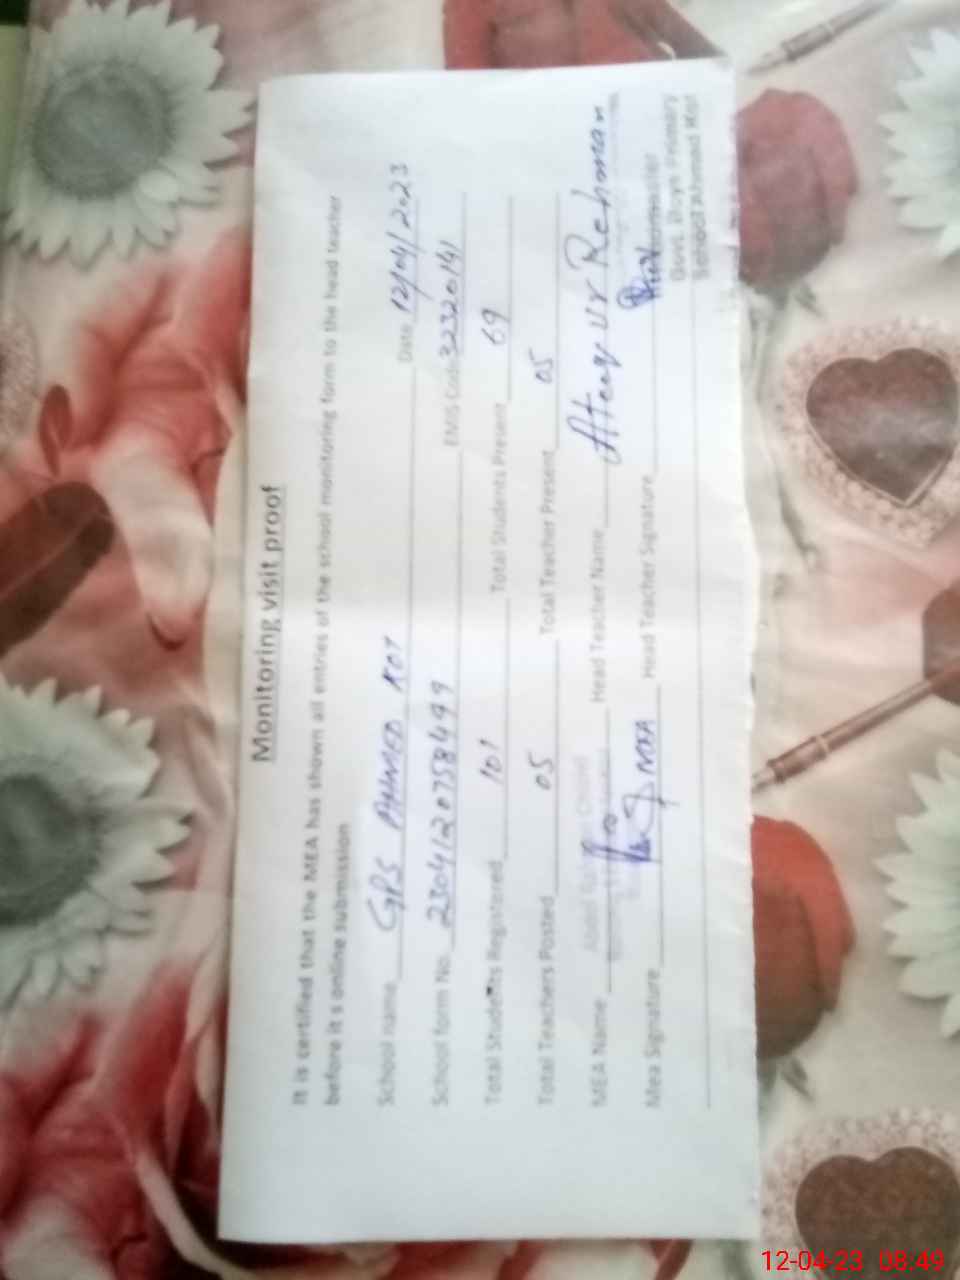 Monitoring visit proof
It is certified that the MEA has shown all entries of the school monitoring form to the head teacher
before it s online submission
School name GPS AHMED KOT Date 12/04/2023
School form No. 2304120758499 EMIS Code 32320141
Total Students Registered 101 Total Students Present 69
Total Teachers Posted 05 Total Teacher Present 05
MEA Name Head Teacher Name Ateeq Ur Rehman
Mea Signature MEA Head Teacher Signature
Headmaster
Govt. Boys Primary
School Ahmed Kot
12-04-23 08:49